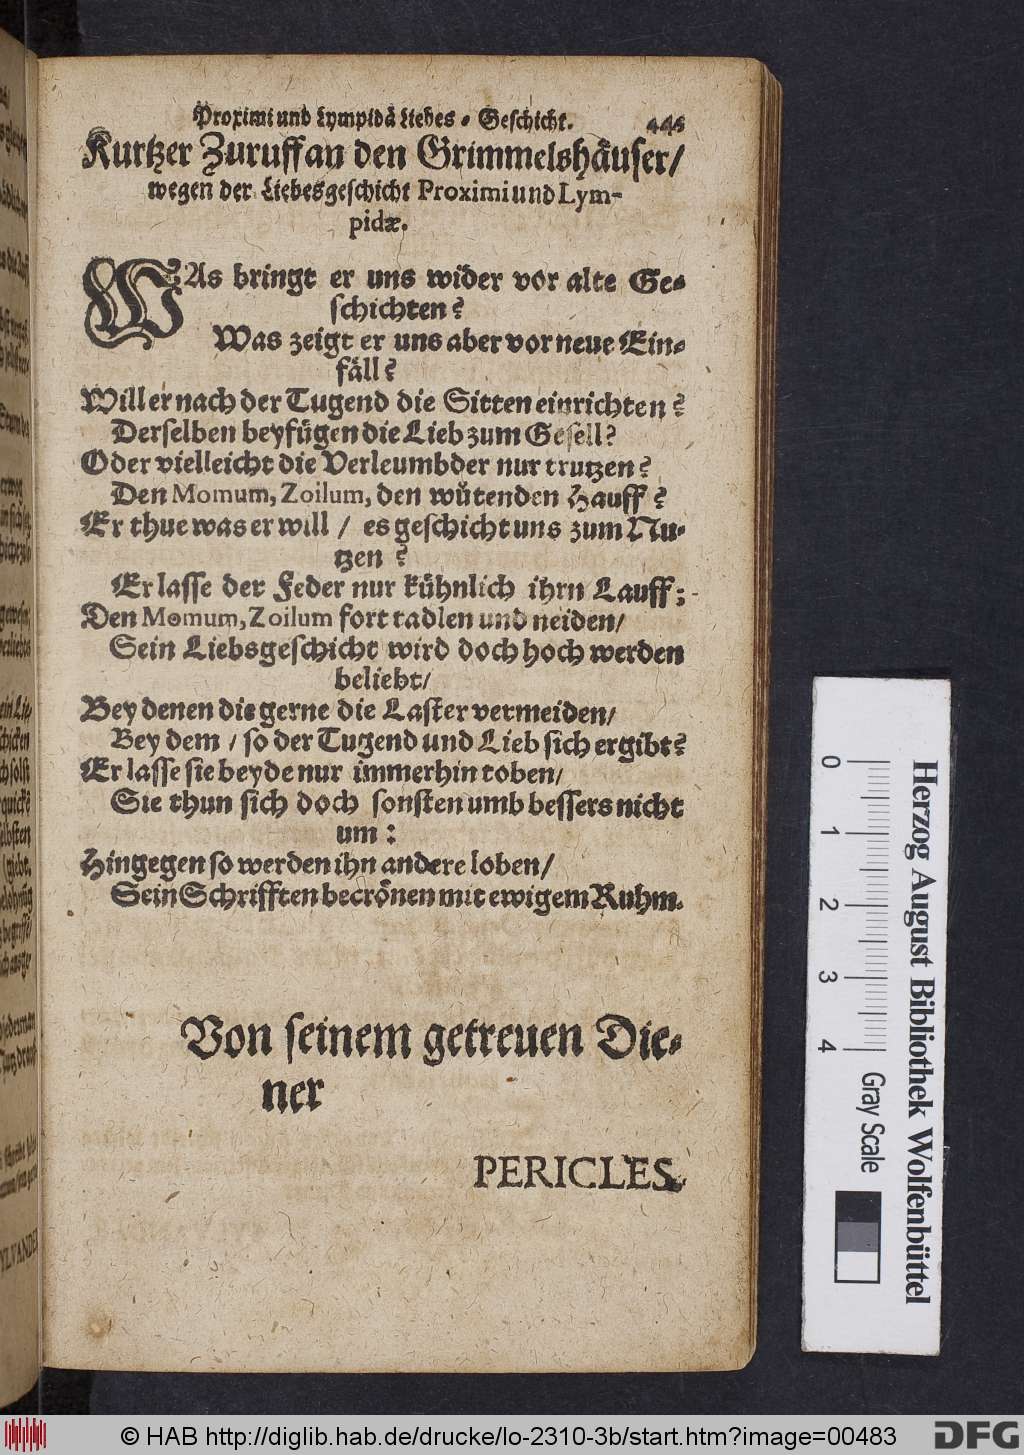 Proximi und Lympidâ Liebes-Geschicht. 445
Kurtzer Zuruff an den Grimmelshäuser/
wegen der Liebesgeschicht Proximi und Lym-
pidæ.
WAs bringt er uns wider vor alte Ge-
schichten?
Was zeigt er uns aber vor neue Ein-
fäll?
Will er nach der Tugend die Sitten einrichten?
Derselben beyfügen die Lieb zum Gesell?
Oder vielleicht die Verleumbder nur trutzen?
Den Momum, Zoilum, den wütenden Hauff?
Er thue was er will / es geschicht uns zum Nu-
tzen?
Er lasse der Feder nur kühnlich ihrn Lauff;
Den Momum, Zoilum fort tadlen und neiden/
Sein Liebsgeschicht wird doch hoch werden
beliebt/
Bey denen die gerne die Laster vermeiden/
Bey dem / so der Tugend und Lieb sich ergibt?
Er lasse sie beyde nur immerhin toben/
Sie thun sich doch sonsten umb bessers nicht
um:
Hingegen so werden ihn andere loben/
Sein Schrifften becrönen mit ewigem Ruhm.
Von seinem getreuen Die-
ner
PERICLES.
Herzog August Bibliothek Wolfenbüttel
0 1 2 3 4 Gray Scale
© HAB http://diglib.hab.de/drucke/lo-2310-3b/start.htm?image=00483
DFG